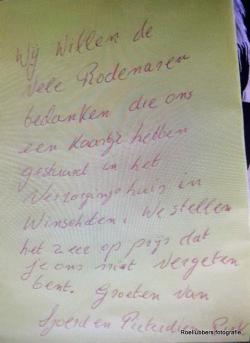 Wij willen de
vele Rodenaren
bedanken die ons
een kaartje hebben
gestuurd in het
verzorgingshuis in
Winschoten. We stellen
het zeer op prijs dat
je ons niet vergeten
bent. Groeten van
Sjoerd en
Roel Lubbers fotografie